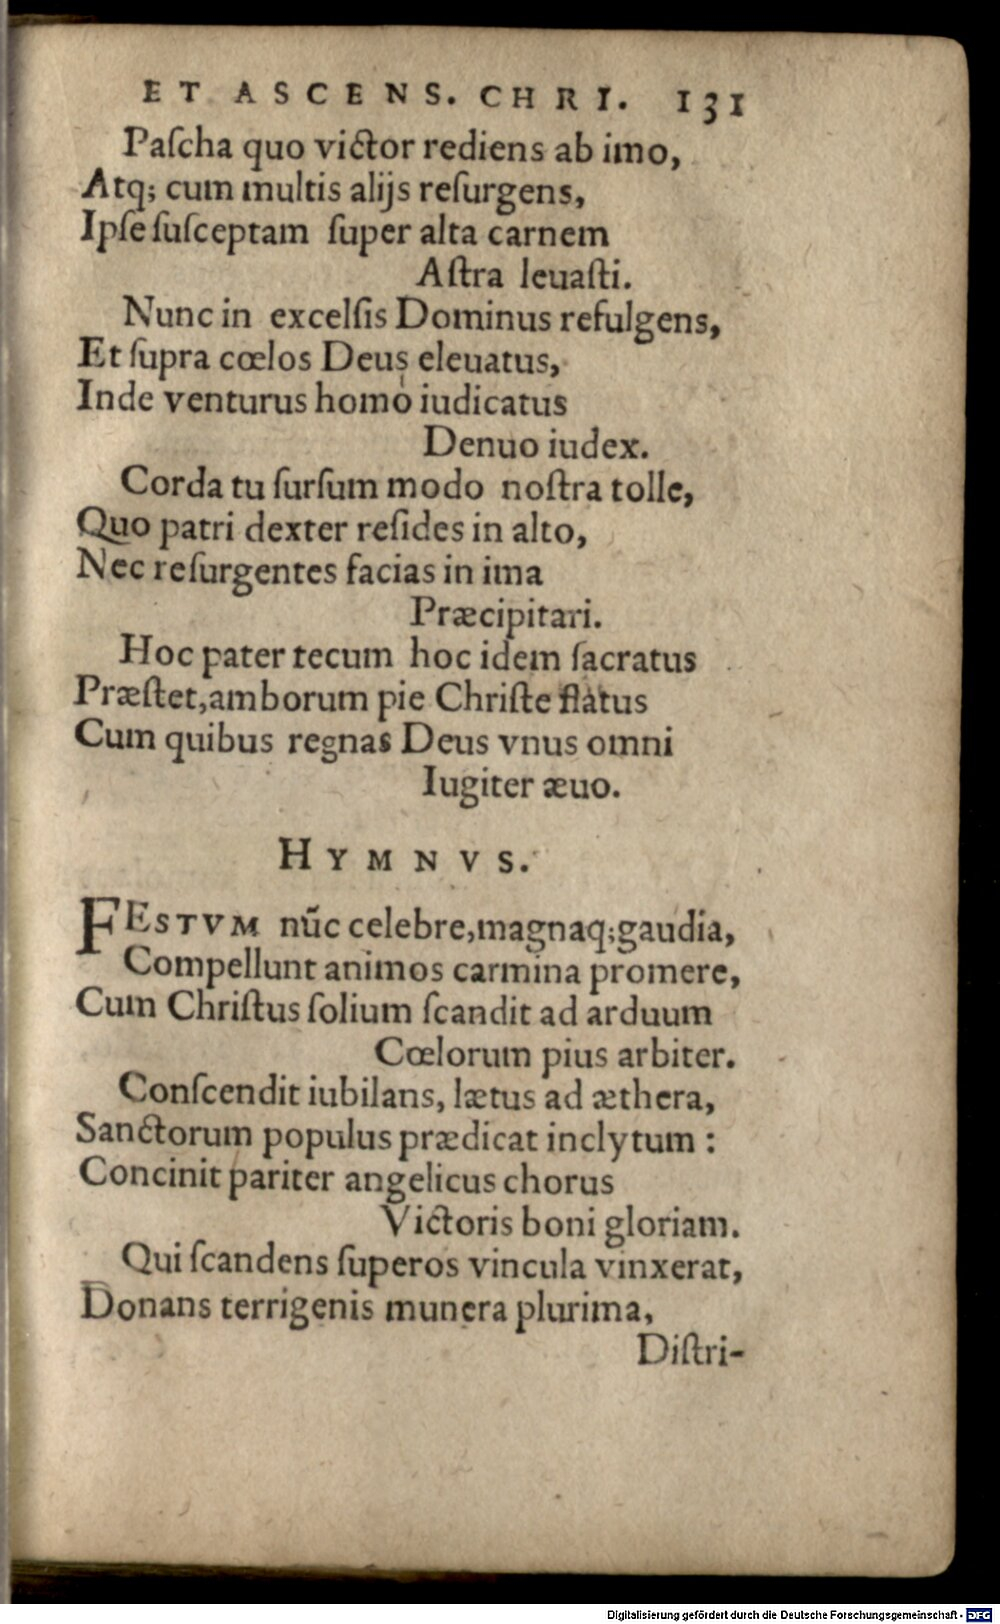 ET ASCENS. CHRI. 131
Paſcha quo victor rediens ab imo,
Atq; cum multis alijs reſurgens,
Ipſe ſuſceptam ſuper alta carnem
Aſtra leuaſti.
Nunc in excelſis Dominus refulgens,
Et ſupra cœlos Deus eleuatus,
Inde venturus homo iudicatus
Denuo iudex.
Corda tu ſurſum modo noſtra tolle,
Quo patri dexter reſides in alto,
Nec reſurgentes facias in ima
Præcipitari.
Hoc pater tecum hoc idem ſacratus
Præſtet, amborum pie Chriſte flatus
Cum quibus regnas Deus vnus omni
Iugiter æuo.
HYMNVS.
FESTVM nũc celebre, magnaq; gaudia,
Compellunt animos carmina promere,
Cum Chriſtus ſolium ſcandit ad arduum
Cœlorum pius arbiter.
Conſcendit iubilans, lætus ad æthera,
Sanctorum populus prædicat inclytum :
Concinit pariter angelicus chorus
Victoris boni gloriam.
Qui ſcandens ſuperos vincula vinxerat,
Donans terrigenis munera plurima,
Diſtri-
Digitalisierung gefördert durch die Deutsche Forschungsgemeinschaft - DFG